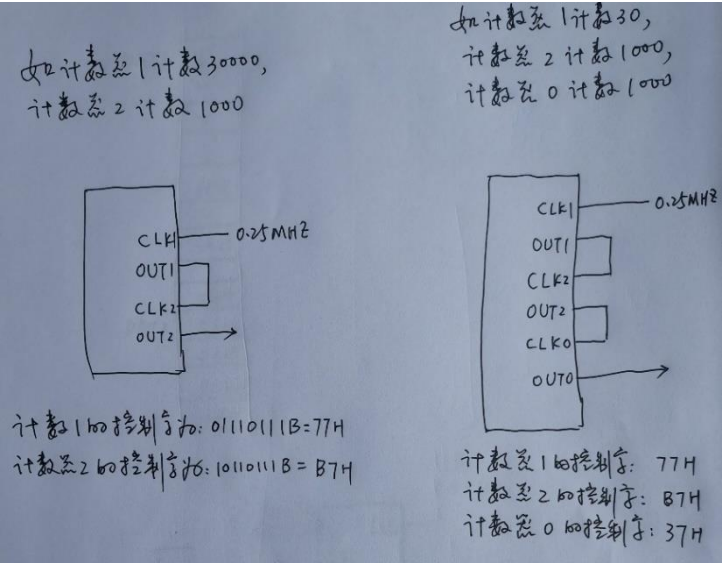 如计数器1计数30000,
计数器2计数1000
CLK1
0.25MHZ
OUT1
CLK2
OUT2
计数1的控制字为:01110111B=77H
计数器2的控制字为:10110111B=B7H
如计数器1计数30,
计数器2计数1000,
计数器0计数1000
CLK1
0.25MHZ
OUT1
CLK2
OUT2
CLK0
OUT0
计数器1的控制字:77H
计数器2的控制字:B7H
计数器0的控制字:37H